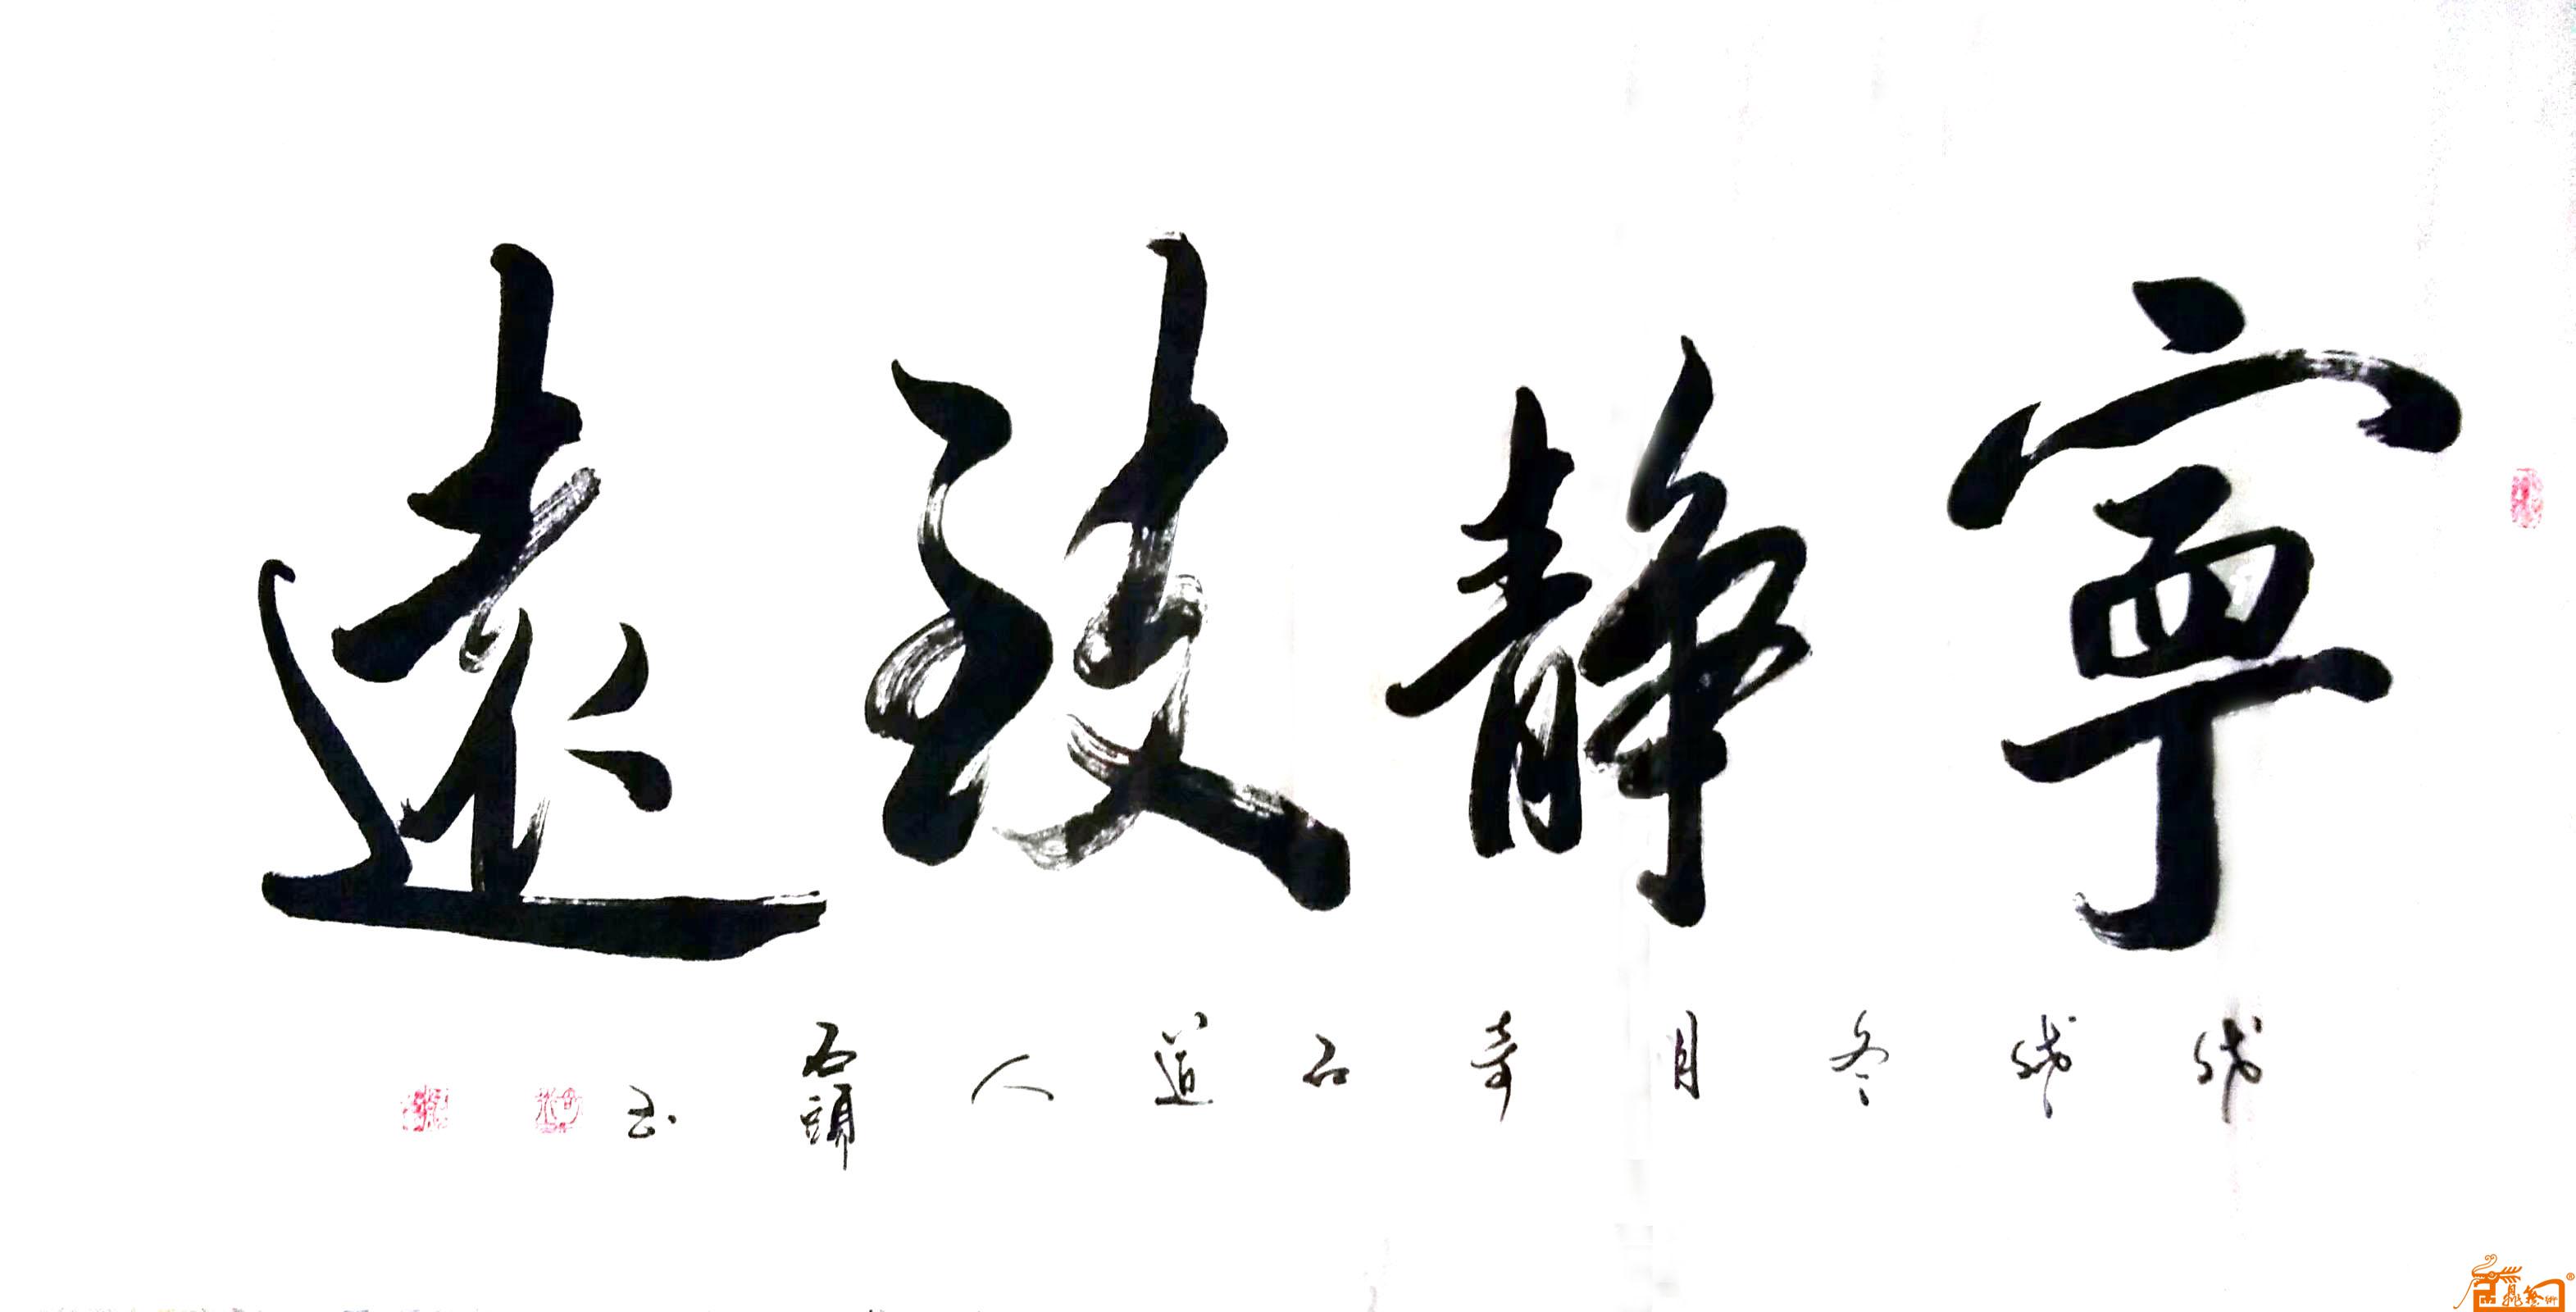 寧靜致遠
戊戌冬月奇石道人石頭书